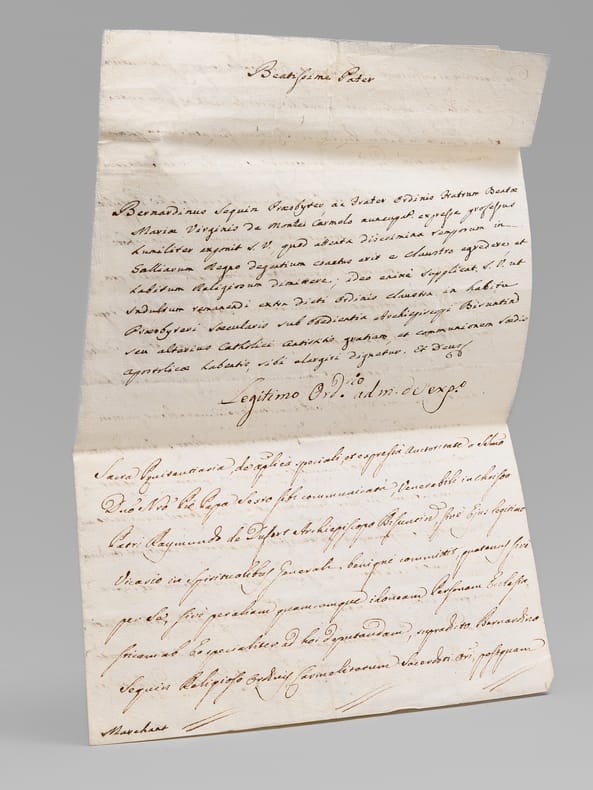 Beatissime Pater
Bernardinus Seguin Præsbyter, ac Frater Ordinis Fratrum Beatæ
Mariæ Virginis de Monte Carmelo nuncupat. expresse professus
humiliter exponit S. V. quod attenta discrimina temporum in
Galliarum Regno degentium coactus erit e claustro egredere et
habitum Religiosum demittere; ideo enixe supplicat S. V. ut
Indultum remanendi extra dicti Ordinis claustra in habitu
Præsbyteri Sæcularis sub obedientia Archiepiscopi Bisuntini
seu alterius Catholici Antistitis gratiam, et communionem Sedis
Apostolicæ habentis, sibi elargiri dignetur. Et Deus
Legitimo Ord.rio adm. de exp.o
Sacra Pœnitentiaria de aplica speciali, et expressa Auctoritate a
Dno Nro Pio Papa Sexto sibi communicata, Venerabili in Christo
Patri Raymundo de Dufort Archiepiscopo Bisuntin sive Ejus legitimo
Vicario in Spiritualibus Generali benigne committit quatenus sive
per Se, sive per aliam quamcumque idoneam Personam Ecclesia
sticam ab Eo specialiter ad hoc deputandam, supradito Bernardino
Seguin Religioso Ordinis Carmelitarum Sacerdoti Ori, postquam
Marchant